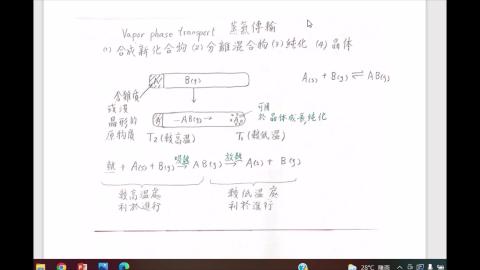 Vapor phase transport 蒸氣傳輸
(1) 合成新化合物 (2) 分離混合物 (3) 純化 (4) 晶體
A B(g)
A(s) + B(g) ⇌ AB(g)
含雜質
或沒
晶形的
原物質
A —AB(g)→ A
可用
於晶体成長,純化
T₂ (較高溫) T₁ (較低溫)
熱 + A(s) + B(g) 吸熱→ AB(g) 放熱→ A(s) + B(g)
較高溫處 較低溫處
利於進行 利於進行
28°C 陣雨